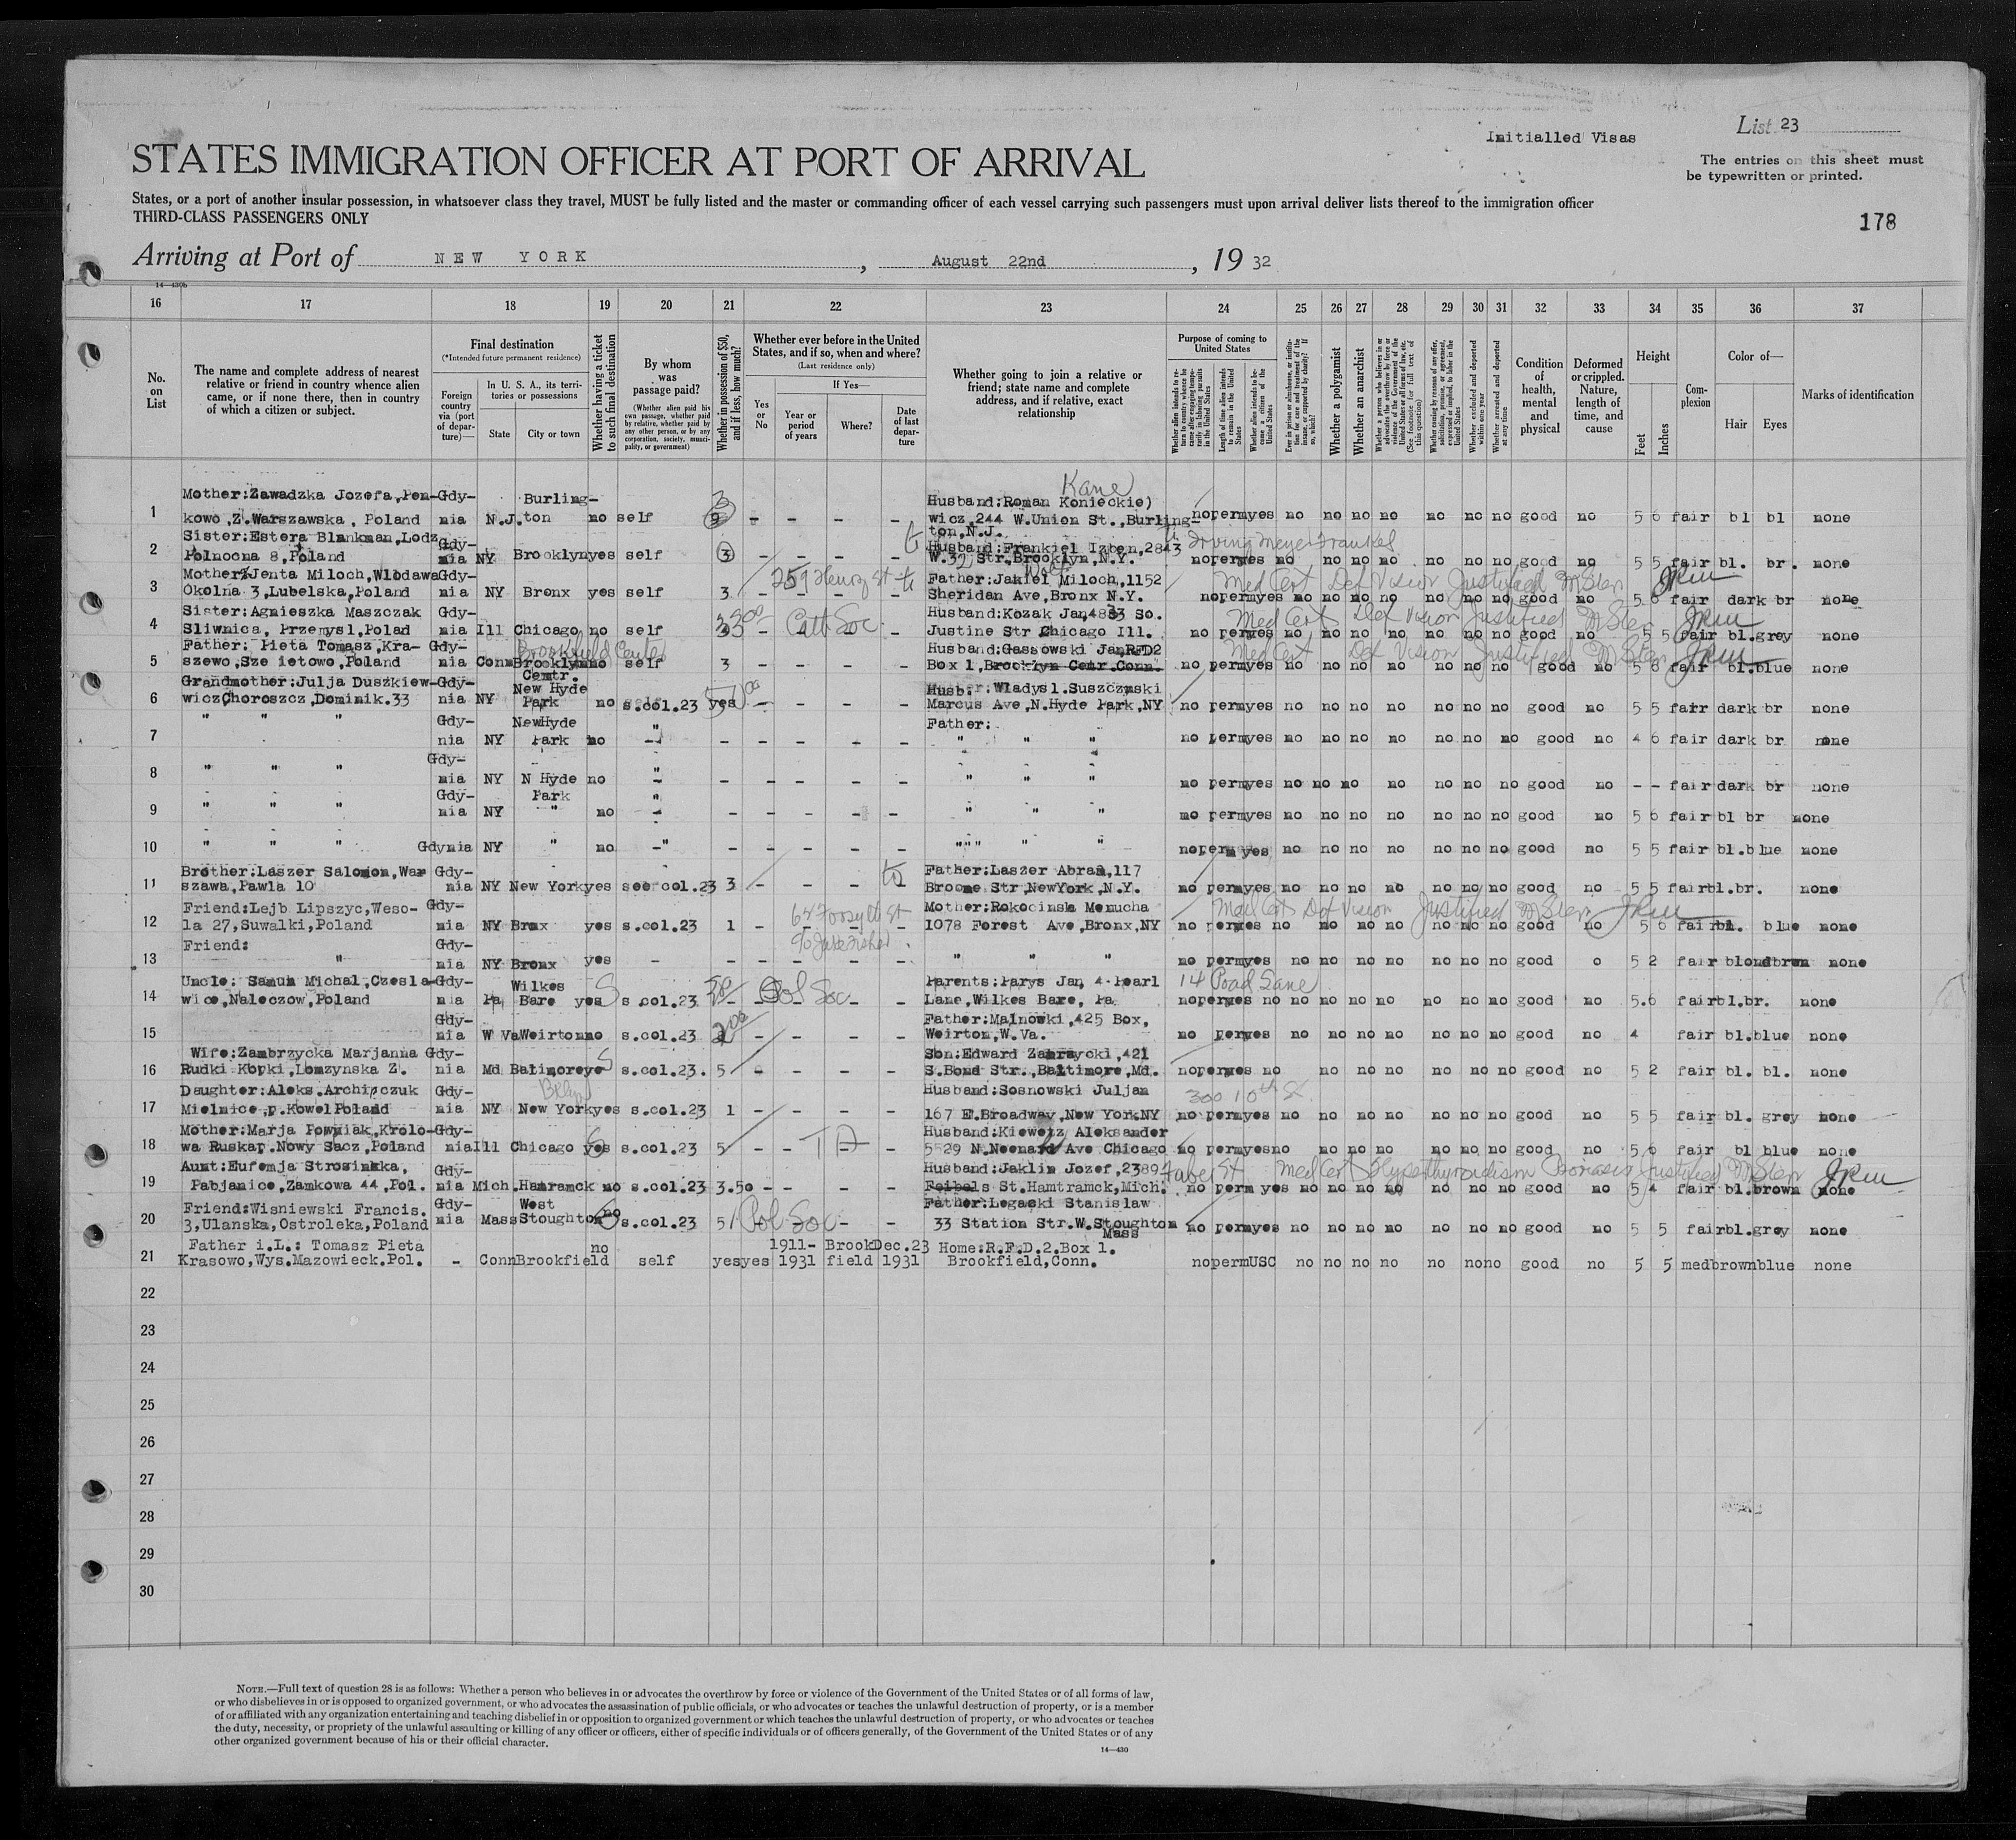 Initialled Visas
List 23
STATES IMMIGRATION OFFICER AT PORT OF ARRIVAL
The entries on this sheet must
be typewritten or printed.
States, or a port of another insular possession, in whatsoever class they travel, MUST be fully listed and the master or commanding officer of each vessel carrying such passengers must upon arrival deliver lists thereof to the immigration officer
THIRD-CLASS PASSENGERS ONLY
178
Arriving at Port of NEW YORK, August 22nd, 19 32
14—430b
16 17 18 19 20 21 22 23 24 25 26 27 28 29 30 31 32 33 34 35 36 37
No. on List
The name and complete address of nearest relative or friend in country whence alien came, or if none there, then in country of which a citizen or subject.
Final destination
(*Intended future permanent residence)
Foreign country via (port of departure)—
In U. S. A., its territories or possessions
State
City or town
Whether having a ticket to such final destination
By whom was passage paid?
(Whether alien paid his own passage, whether paid by relative, whether paid by any other person, or by any corporation, society, municipality, or government)
Whether in possession of $50, and if less, how much?
Whether ever before in the United States, and if so, when and where?
(Last residence only)
Yes or No
If Yes—
Year or period of years
Where?
Date of last departure
Whether going to join a relative or friend; state name and complete address, and if relative, exact relationship
Purpose of coming to United States
Whether alien intends to return to country whence he came after engaging temporarily in laboring pursuits in the United States
Length of time alien intends to remain in the United States
Whether alien intends to become a citizen of the United States
Ever in prison or almshouse, or institution for care and treatment of the insane, or supported by charity? If so, which?
Whether a polygamist
Whether an anarchist
Whether a person who believes in or advocates the overthrow by force or violence of the Government of the United States or all forms of law, etc. (See footnote for full text of this question)
Whether coming by reason of any offer, solicitation, promise, or agreement, expressed or implied, to labor in the United States
Whether excluded and deported within one year
Whether arrested and deported at any time
Condition of health, mental and physical
Deformed or crippled. Nature, length of time, and cause
Height
Feet
Inches
Complexion
Color of—
Hair
Eyes
Marks of identification
Kane
Mother:Zawadzka Jozefa,Pen- Gdy- Burling- Husband:Roman Konieckie)
1 kowo,Z.Warszawska, Poland nia N.J. ton no self 9 - - - - wicz,244 W.Union St.,Burling- no perm yes no no no no no no no good no 5 6 fair bl bl none
ton,N.J.
Sister:Estera Blankman,Lodz Gdy- Husband:Frankiel Izben,2843 Irving Meyer Frankel
2 Polnocna 8,Poland nia NY Brooklyn yes self 3 - - - - W.32 Str,Brooklyn,N.Y. no perm yes no no no no no no no good no 5 5 fair bl. br. none
Mother:Jenta Miloch,Wlodawa Gdy- 259 Henry St Father:Jankiel Miloch,1152 Med Cert Def Vision Justified
3 Okolna 3,Lubelska,Poland nia NY Bronx yes self 3 - - - - Sheridan Ave,Bronx N.Y. no perm yes no no no no no no no good no 5 6 fair dark br none
Sister:Agnieszka Maszczak Gdy- Husband:Kozak Jan,4833 So. Med Cert Def Vision Justified
4 Sliwnica, Przemysl,Polad nia Ill Chicago no self - - - Justine Str Chicago Ill. no perm yes no no no no no no no good no 5 5 fair bl.grey none
Father: Pieta Tomasz,Kra- Gdy- Brookfield Center Husband:Gassowski Jan,RFD2 Med Cert Def Vision Justified
5 szewo,Sze ietowo,Poland nia Conn Brooklyn no self 3 - - - - Box 1,Brooklyn Centr.Conn. no perm yes no no no no no no no good no 5 6 fair bl.blue none
Centr.
Grandmother:Julja Duszkiew- Gdy- New Hyde Husb.: Wladysl.Suszczynski
6 wicz,Choroszcz,Dominik.33 nia NY Park no s.col.23 yes - - - - Marcus Ave,N.Hyde Park,NY no perm yes no no no no no no no good no 5 5 fair dark br none
" " Gdy- NewHyde " Father:
7 nia NY Park no - - - - - - " " " no perm yes no no no no no no no good no 4 6 fair dark br none
" " " Gdy- "
8 nia NY N Hyde no - - - - - - " " " no perm yes no no no no no no no good no - - fair dark br none
Gdy- Park "
9 " " " nia NY " no - - - - - - " " " no perm yes no no no no no no no good no 5 6 fair bl br none
10 " " " Gdynia NY " no -" - - - - - " " " no perm yes no no no no no no no good no 5 5 fair bl.blue none
Brother:Laszer Salomon,War Gdy- Father:Laszer Abram,117
11 szawa,Pawla 10 nia NY New York yes see col.23 3 - - - - Broome Str,NewYork,N.Y. no perm yes no no no no no no no good no 5 5 fair bl.br. none
Friend:Lejb Lipszyc,Weso- Gdy- 64 Forsyth St Mother:Rokocinsk Menucha Med Cert Def Vision Justified
12 la 27,Suwalki,Poland nia NY Brnx yes s.col.23 1 - - - - 1078 Forest Ave,Bronx,NY no perm yes no no no no no no no good no 5 6 fair bl. blue none
Friend: Gdy-
13 " nia NY Bronx yes - - - - - - " " " no perm yes no no no no no no no good o 5 2 fair blond brwn none
Uncle: Samun Michal,Czesla- Gdy- Wilkes Parents:Parys Jan 4 Pearl 14 Poad Lane
14 wice,Naleczow,Poland nia Pa Bare yes s.col.23 - Pol Soc - - Lane,Wilkes Bare, Pa no perm yes no no no no no no no good no 5.6 fair bl.br. none
Gdy- Father:Malnowki,425 Box,
15 nia W Va Weirton no s.col.23 - - - - Weirton,W.Va. no perm yes no no no no no no no good no 4 fair bl.blue none
Wife:Zambrzycka Marjanna Gdy- Son:Edward Zambrzycki,421
16 Rudki Korki,Lomzynska Z. nia Md Baltimore yes s.col.23. 5 - - - - S.Bond Str.,Baltimore,Md. no perm yes no no no no no no no good no 5 2 fair bl. bl. none
Daughter:Aleks.Archipczuk Gdy- Bklyn Husband:Sosnowski Juljan 300 10th St.
17 Mielnice,p.Kowel Poland nia NY New York yes s.col.23 1 - - - - 167 E.Broadway,New York NY no perm yes no no no no no no no good no 5 5 fair bl. grey none
Mother:Marja Powniak,Krolo- Gdy- Husband:Kiewetz Aleksander
18 wa Ruskap.Nowy Sacz,Poland nia Ill Chicago yes s.col.23 5 - - - - 5529 N.Neenard Ave Chicago no perm yes no no no no no no no good no 5 6 fair bl blue none
Aunt:Eufemja Strosinkka, Gdy- Husband:Jaklin Jozef,2389 Faber St Med Cert Hyperthyroidism Psoriasis Justified
19 Pabjanice,Zamkowa 44,Pol. nia Mich. Hamramck no s.col.23 3.50 - - - - Feibels St.Hamtramck,Mich. no perm yes no no no no no no no good no 5 4 fair bl.brown none
Friend:Wisniewski Francis. Gdy- West Father:Legacki Stanislaw
20 3,Ulanska,Ostroleka,Poland nia Mass Stoughton no s.col.23 5 Pol Soc - - 33 Station Str.W.Stoughton no perm yes no no no no no no no good no 5 5 fair bl.grey none
Mass
Father i.L.: Tomasz Pieta no 1911- Brook Dec.23 Home:R.F.D.2.Box 1.
21 Krasowo,Wys.Mazowieck.Pol. - Conn Brookfield self yes yes 1931 field 1931 Brookfield,Conn. no perm USC no no no no no no no good no 5 5 med brown blue none
22
23
24
25
26
27
28
29
30
NOTE.—Full text of question 28 is as follows: Whether a person who believes in or advocates the overthrow by force or violence of the Government of the United States or of all forms of law,
or who disbelieves in or is opposed to organized government, or who advocates the assassination of public officials, or who advocates or teaches the unlawful destruction of property, or is a member
of or affiliated with any organization entertaining and teaching disbelief in or opposition to organized government or which teaches the unlawful destruction of property, or who advocates or teaches
the duty, necessity, or propriety of the unlawful assaulting or killing of any officer or officers, either of specific individuals or of officers generally, of the Government of the United States or of any
other organized government because of his or their official character.
14—430